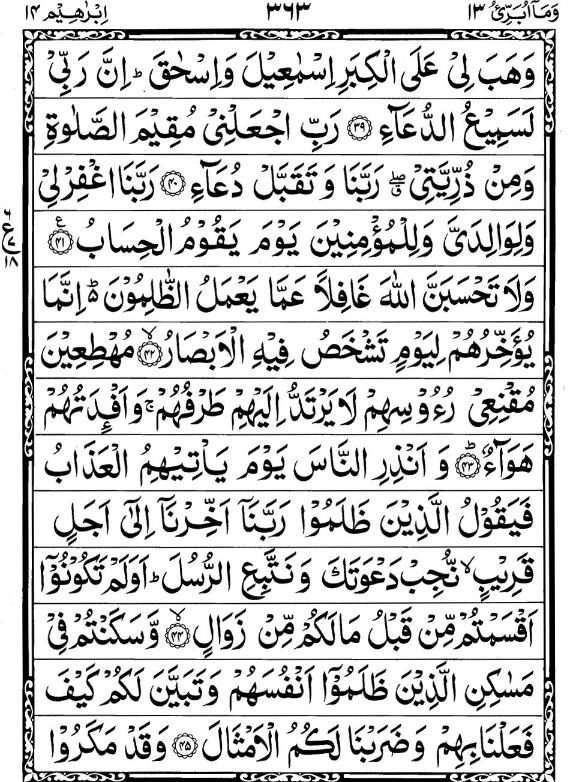 وَمَآ اُبَرِّئُ ١٣ ٣٦٣ اِبْرٰهِيْم ١٤
وَهَبَ لِىْ عَلَى الْكِبَرِ اِسْمٰعِيْلَ وَاِسْحٰقَ ؕ اِنَّ رَبِّىْ
لَسَمِيْعُ الدُّعَآءِ ﴿٣٩﴾ رَبِّ اجْعَلْنِىْ مُقِيْمَ الصَّلٰوةِ
وَمِنْ ذُرِّيَّتِىْ ۖ ق رَبَّنَا وَتَقَبَّلْ دُعَآءِ ﴿٤٠﴾ رَبَّنَا اغْفِرْ لِىْ
وَلِوَالِدَىَّ وَلِلْمُؤْمِنِيْنَ يَوْمَ يَقُوْمُ الْحِسَابُ ﴿٤١﴾ ع
٦ ع ٧ ١٨
وَلَا تَحْسَبَنَّ اللّٰهَ غَافِلًا عَمَّا يَعْمَلُ الظّٰلِمُوْنَ ؕ اِنَّمَا
يُؤَخِّرُهُمْ لِيَوْمٍ تَشْخَصُ فِيْهِ الْاَبْصَارُ ﴿٤٢﴾ ۙ مُهْطِعِيْنَ
مُقْنِعِىْ رُءُوْسِهِمْ لَا يَرْتَدُّ اِلَيْهِمْ طَرْفُهُمْ ۚ وَاَفْـِٕدَتُهُمْ
هَوَآءٌ ﴿٤٣﴾ ؕ وَاَنْذِرِ النَّاسَ يَوْمَ يَاْتِيْهِمُ الْعَذَابُ
فَيَقُوْلُ الَّذِيْنَ ظَلَمُوْا رَبَّنَآ اَخِّرْنَآ اِلٰٓى اَجَلٍ
قَرِيْبٍ ۙ نُّجِبْ دَعْوَتَكَ وَنَتَّبِعِ الرُّسُلَ ؕ اَوَلَمْ تَكُوْنُوْٓا
اَقْسَمْتُمْ مِّنْ قَبْلُ مَا لَكُمْ مِّنْ زَوَالٍ ﴿٤٤﴾ ۙ وَّسَكَنْتُمْ فِىْ
مَسٰكِنِ الَّذِيْنَ ظَلَمُوْٓا اَنْفُسَهُمْ وَتَبَيَّنَ لَكُمْ كَيْفَ
فَعَلْنَا بِهِمْ وَضَرَبْنَا لَكُمُ الْاَمْثَالَ ﴿٤٥﴾ وَقَدْ مَكَرُوْا